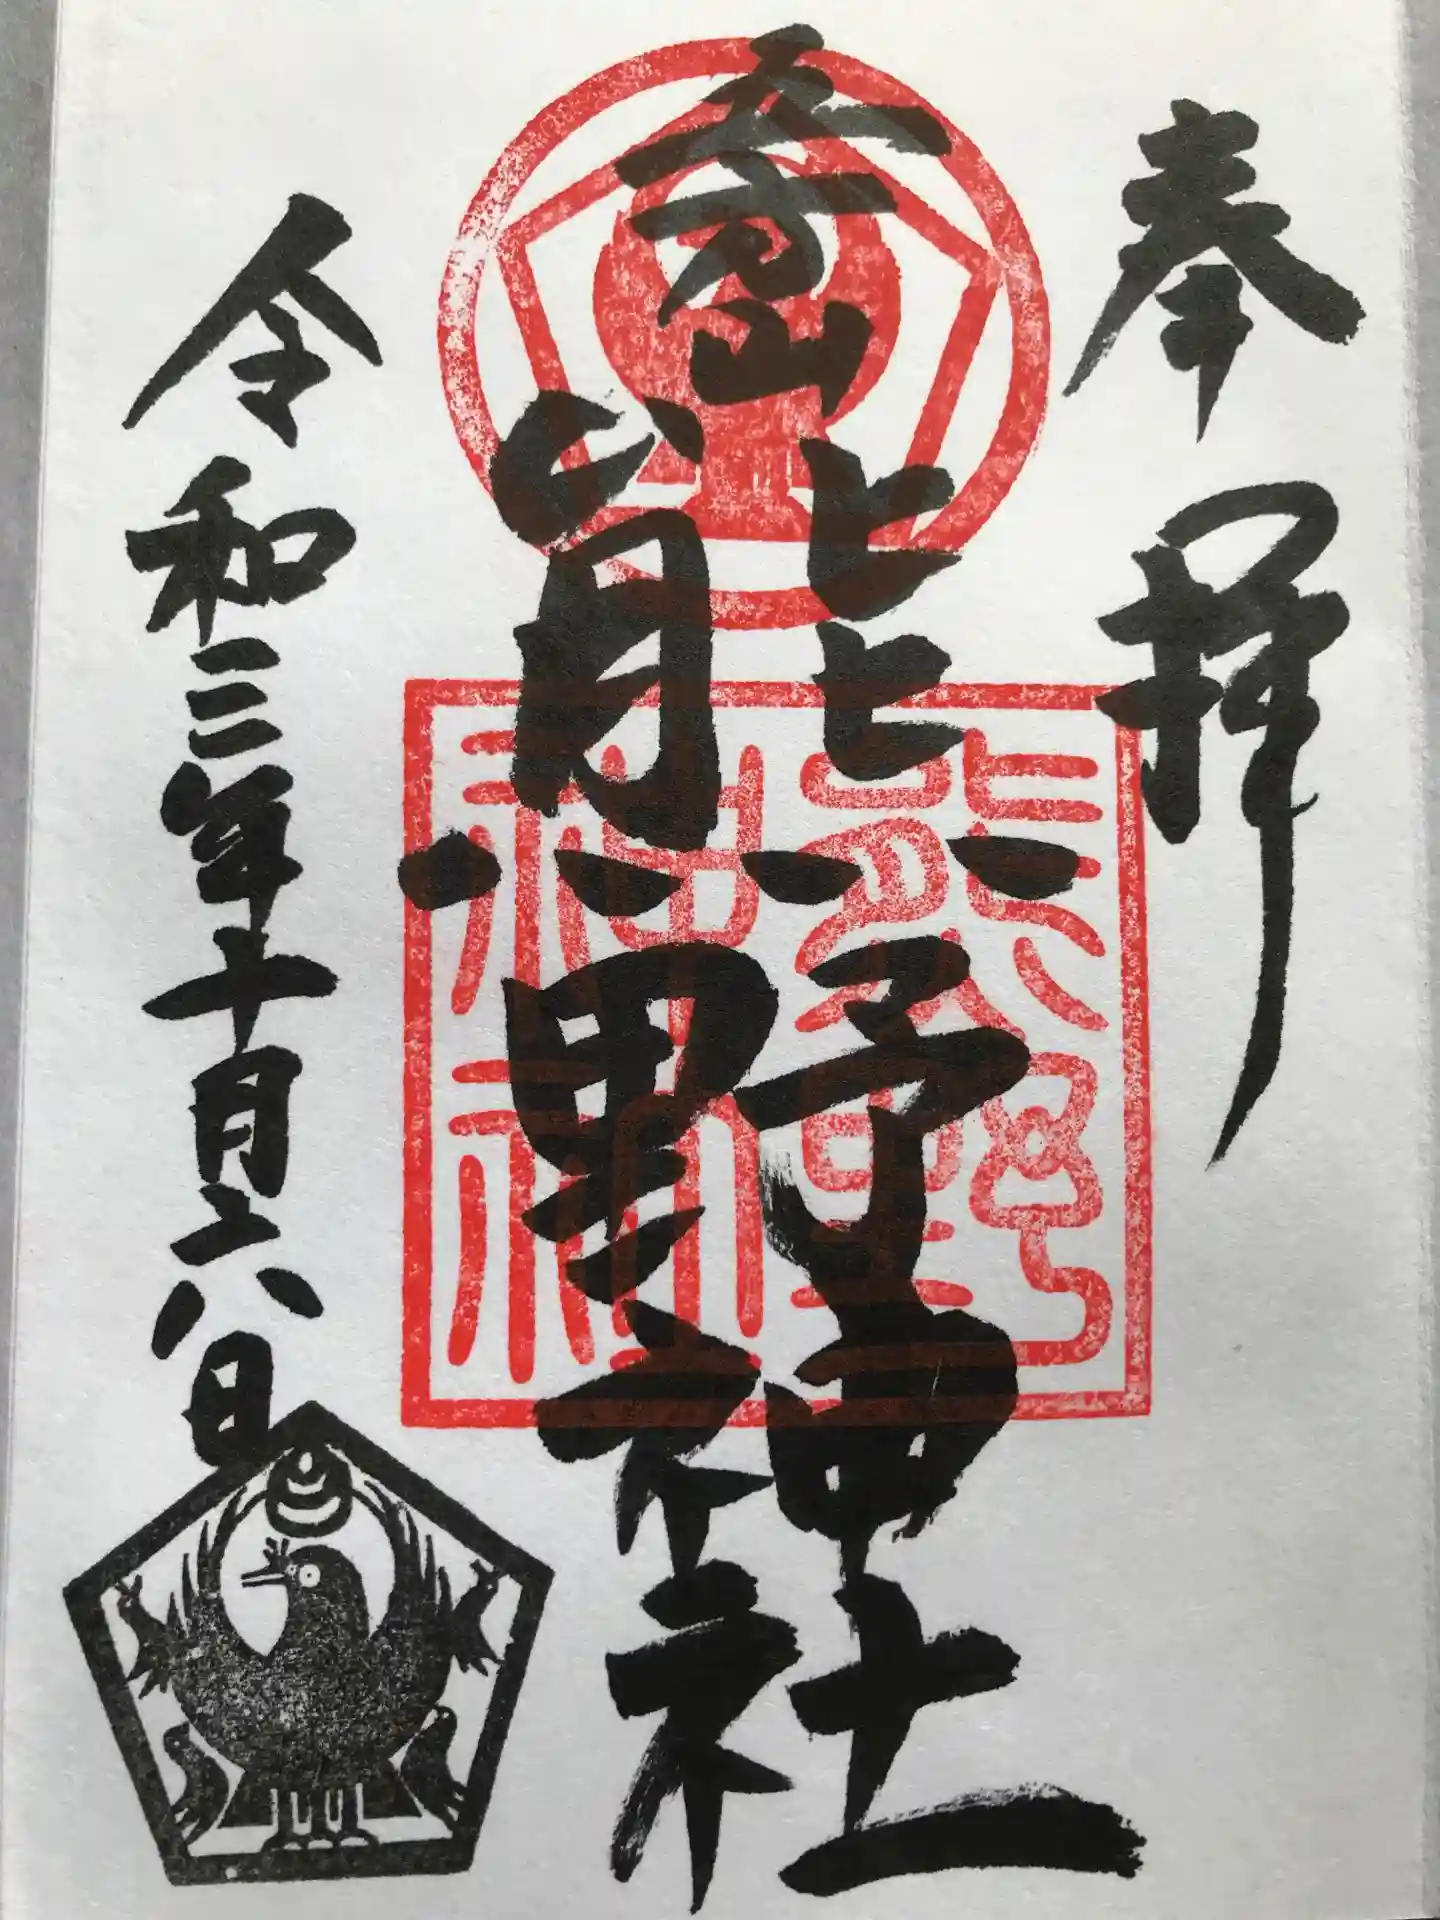 奉拝
熊野神社
熊野
神社
令和三年十月六日